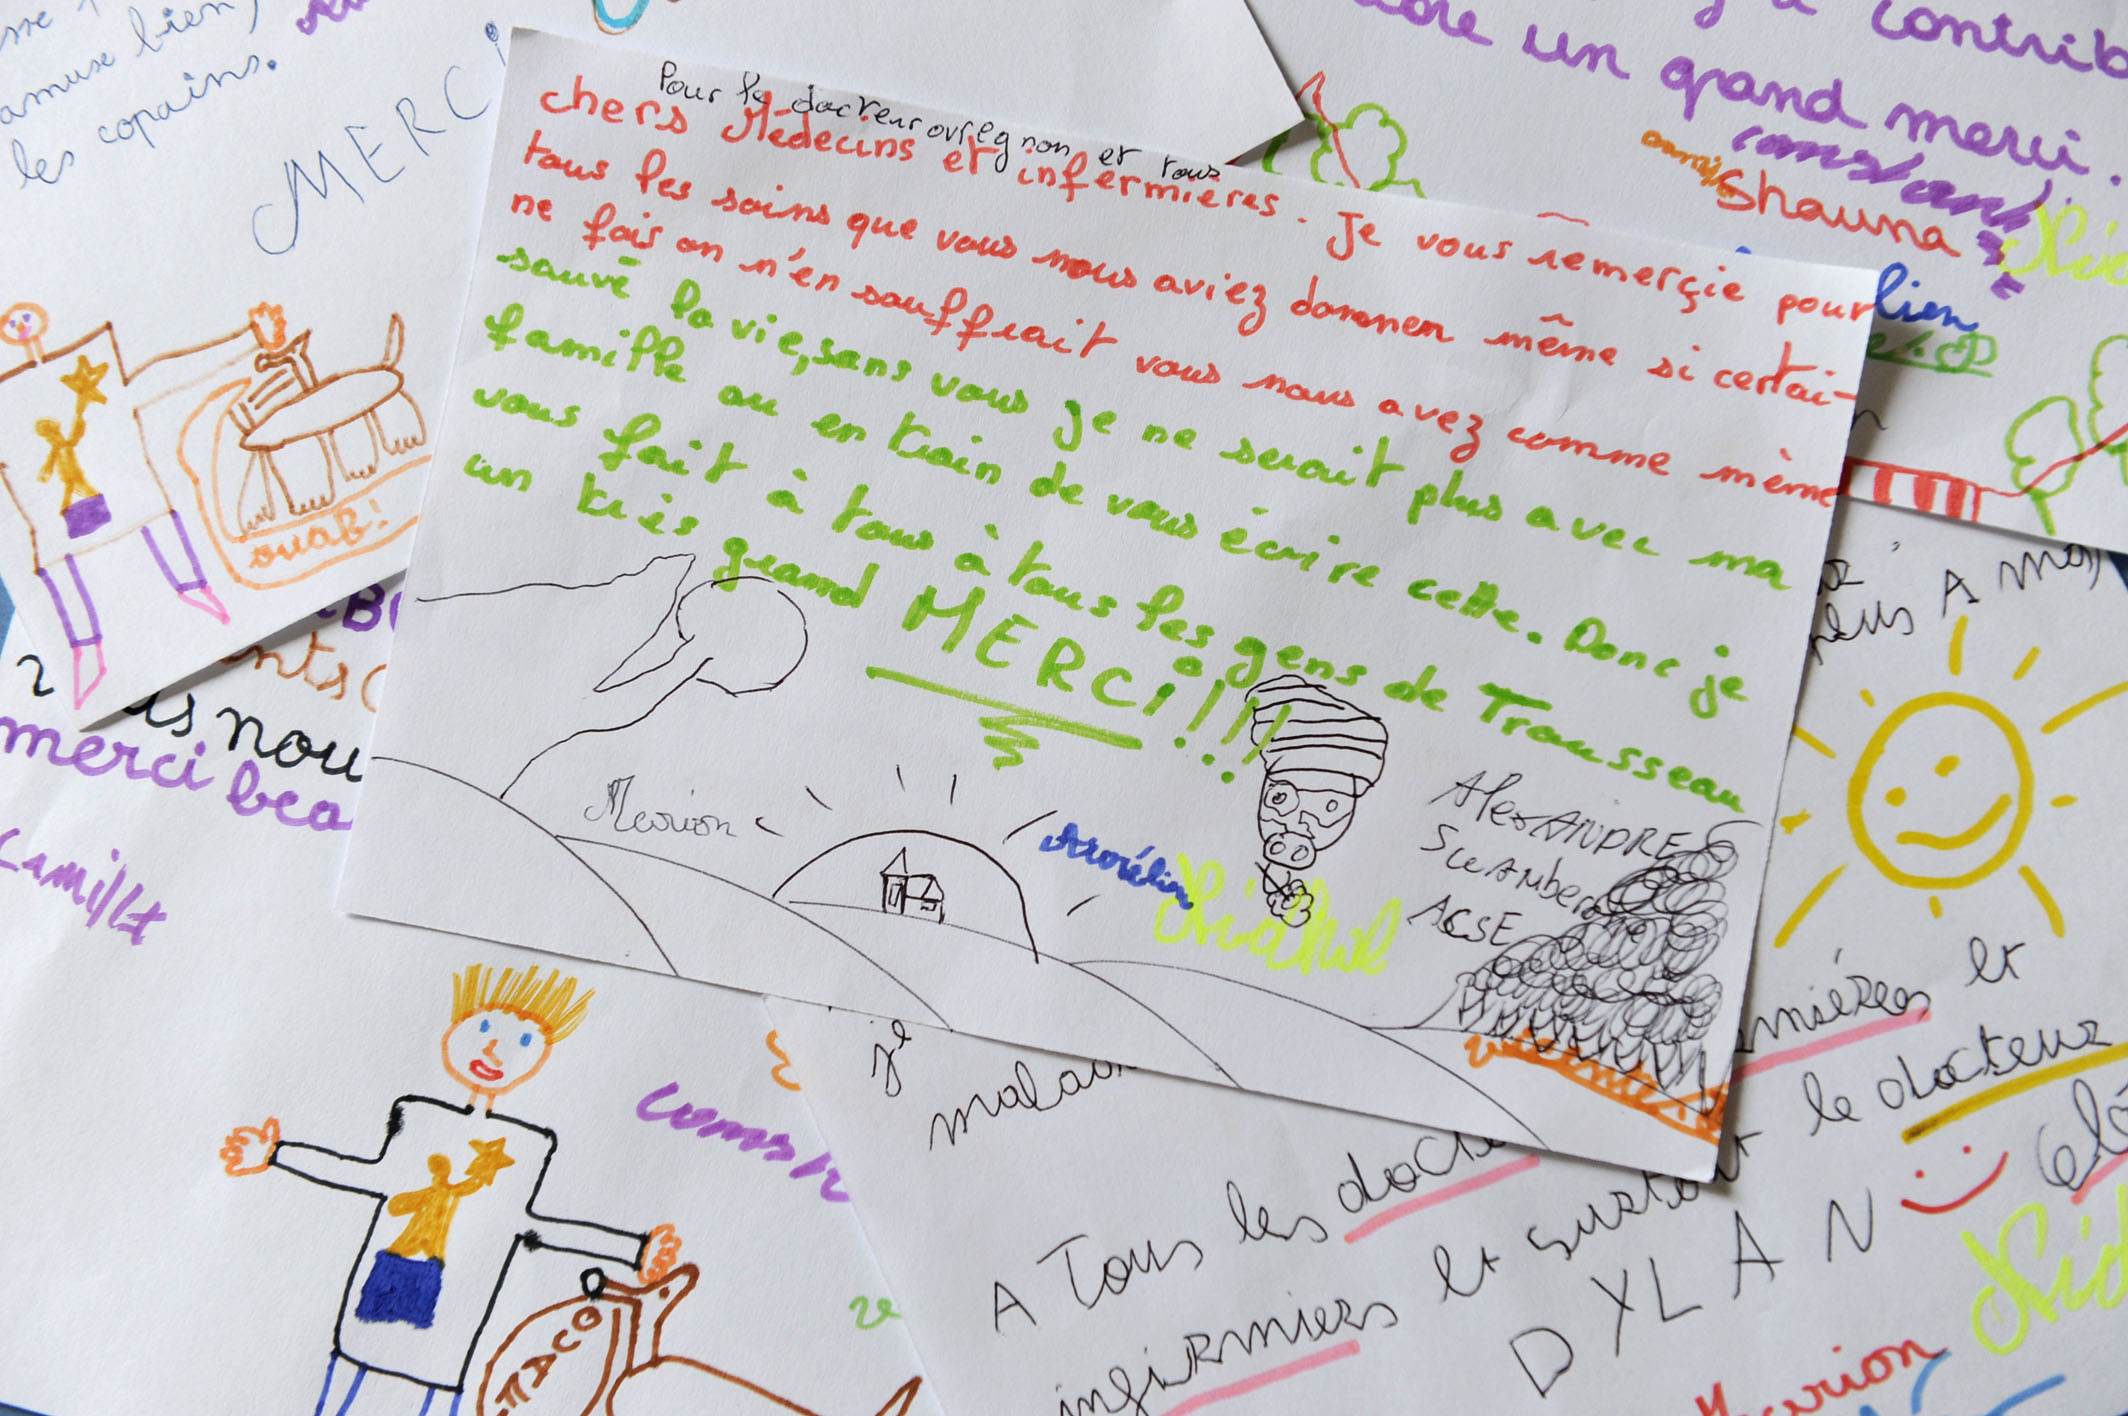 amuse bien,
les copains.
MERCI
contrib
un grand merci.
constant
Shauna
lien
Pour le docteur et tous
chers Médecins et infermières. Je vous remerçie pour
tous les soins que vous nous aviez donner même si certai-
ne fois on n'en souffrait vous nous avez comme même
sauvé la vie, sans vous je ne serait plus avec ma
famille ou en train de vous écrire cette. Donc je
vous fait à tous à tous les gens de Trousseau
un très grand MERCi!!!
Marion
Aurélien
AlexANDRE
ACSE
ouaB!
nou
merci bea
Camille
A mon
PACO
je
A Tous les docte
infirmiers et surtout le docteur
mières et
DYLAN
Marion